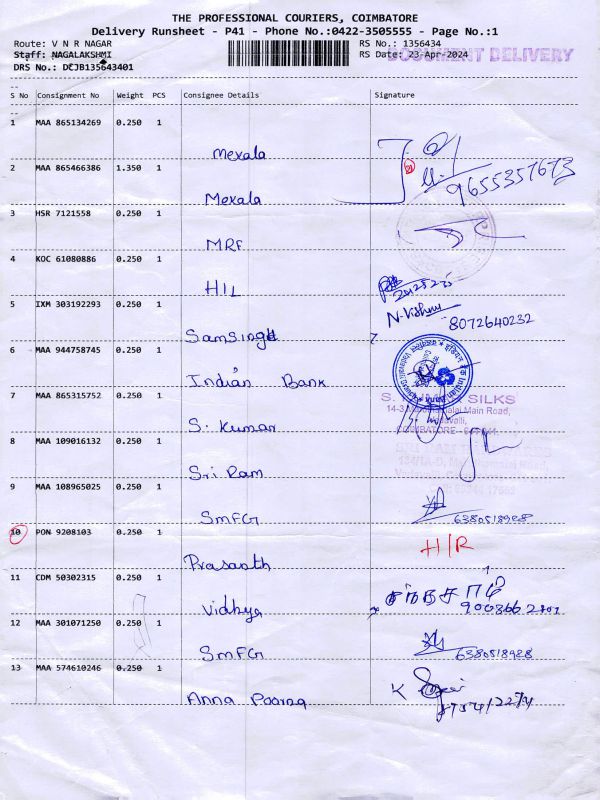 THE PROFESSIONAL COURIERS, COIMBATORE
Delivery Runsheet - P41 - Phone No.:0422-3505555 - Page No.:1
Route: V N R NAGAR
Staff: NAGALAKSHMI
DRS No.: DCJB135643401
RS No.: 1356434
RS Date: 23-Apr-2024
DOCUMENT DELIVERY
S No Consignment No Weight PCS Consignee Details Signature
1 MAA 865134269 0.250 1
Mexala
2 MAA 865466386 1.350 1
9655357673
Mexala
3 HSR 7121558 0.250 1
MRF
4 KOC 61080886 0.250 1
HIL
5 IXM 303192293 0.250 1
N. Vishnu
8072640232
Samsingh
6 MAA 944758745 0.250 1
Indian Bank
7 MAA 865315752 0.250 1
SILKS
Main Road,
COIMBATORE
S. Kumar
8 MAA 109016132 0.250 1
Sri Ram
9 MAA 108965025 0.250 1
6380518928
SMFG
10 PON 9208103 0.250 1
H/R
Prasanth
11 CDM 50302315 0.250 1
Vidhya
12 MAA 301071250 0.250 1
6380518928
SMFG
13 MAA 574610246 0.250 1
Anna Poorna